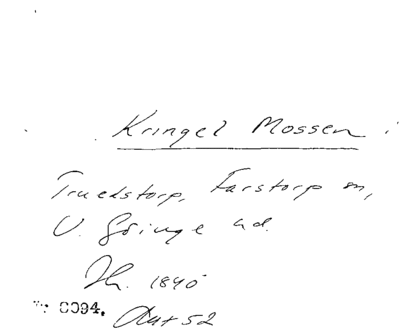 Kringel Mossen i
Truedstorp, Farstorp sn,
V. Göinge hd.
Th. 1840
0094.